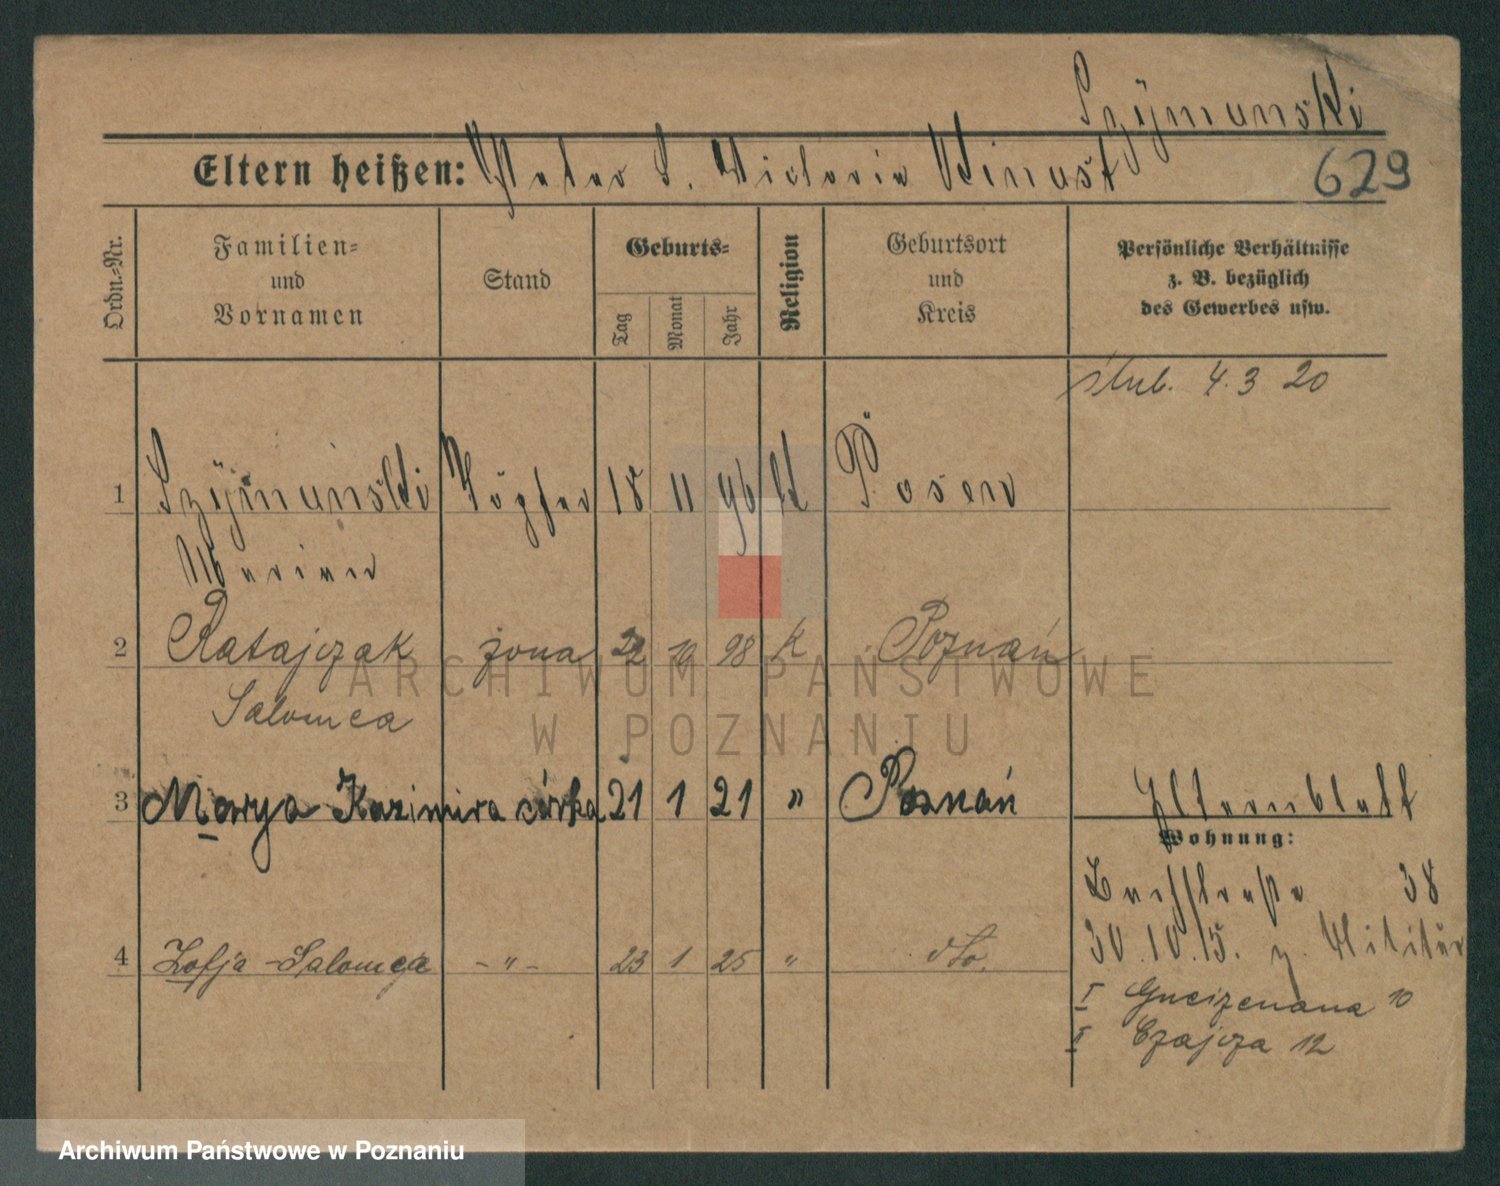 Szymanski
Eltern heißen: Peter S. Victoria Binust
629
Ordn.-Nr.
Familien-
und
Vornamen
Stand
Geburts-
Tag
Monat
Jahr
Religion
Geburtsort
und
Kreis
Persönliche Verhältnisse
z. B. bezüglich
des Gewerbes usw.
ślub. 4.3 20
1 Szymanski Töpfer 18 11 96 kt Posen
Marian
2 Ratajczak żona 22 10 98 k Poznań
Salomea
ARCHIWUM PAŃSTWOWE
W POZNANIU
3 Marya Kazimira córka 21 1 21 " Poznań
Elternblatt
Wohnung:
38
4 Zofja-Salomea -"- 23 1 25 " dto.
30.10.15. z. Militär
I Gneizenaua 10
II Czajcza 12
Archiwum Państwowe w Poznaniu